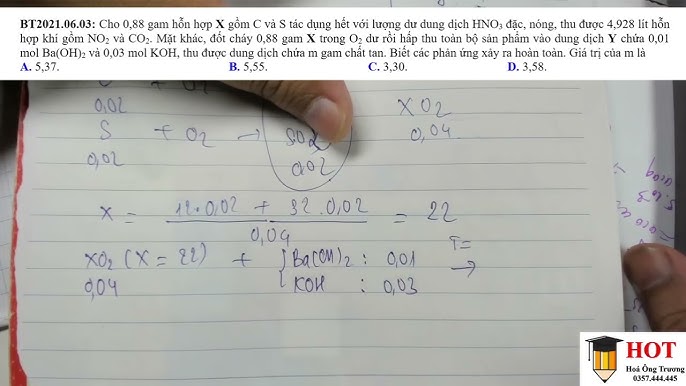 BT2021.06.03: Cho 0,88 gam hỗn hợp X gồm C và S tác dụng hết với lượng dư dung dịch HNO₃ đặc, nóng, thu được 4,928 lít hỗn
hợp khí gồm NO₂ và CO₂. Mặt khác, đốt cháy 0,88 gam X trong O₂ dư rồi hấp thu toàn bộ sản phẩm vào dung dịch Y chứa 0,01
mol Ba(OH)₂ và 0,03 mol KOH, thu được dung dịch chứa m gam chất tan. Biết các phản ứng xảy ra hoàn toàn. Giá trị của m là
A. 5,37. B. 5,55. C. 3,30. D. 3,58.
0,02 XO₂
S + O₂ → SO₂ 0,04
0,02 0,02
X = 12.0,02 + 32.0,02 = 22
0,04
T=
XO₂ (X = 22) + { Ba(OH)₂ : 0,01 →
0,04 KOH : 0,03
HOT
Hoá Ông Trương
0357.444.445